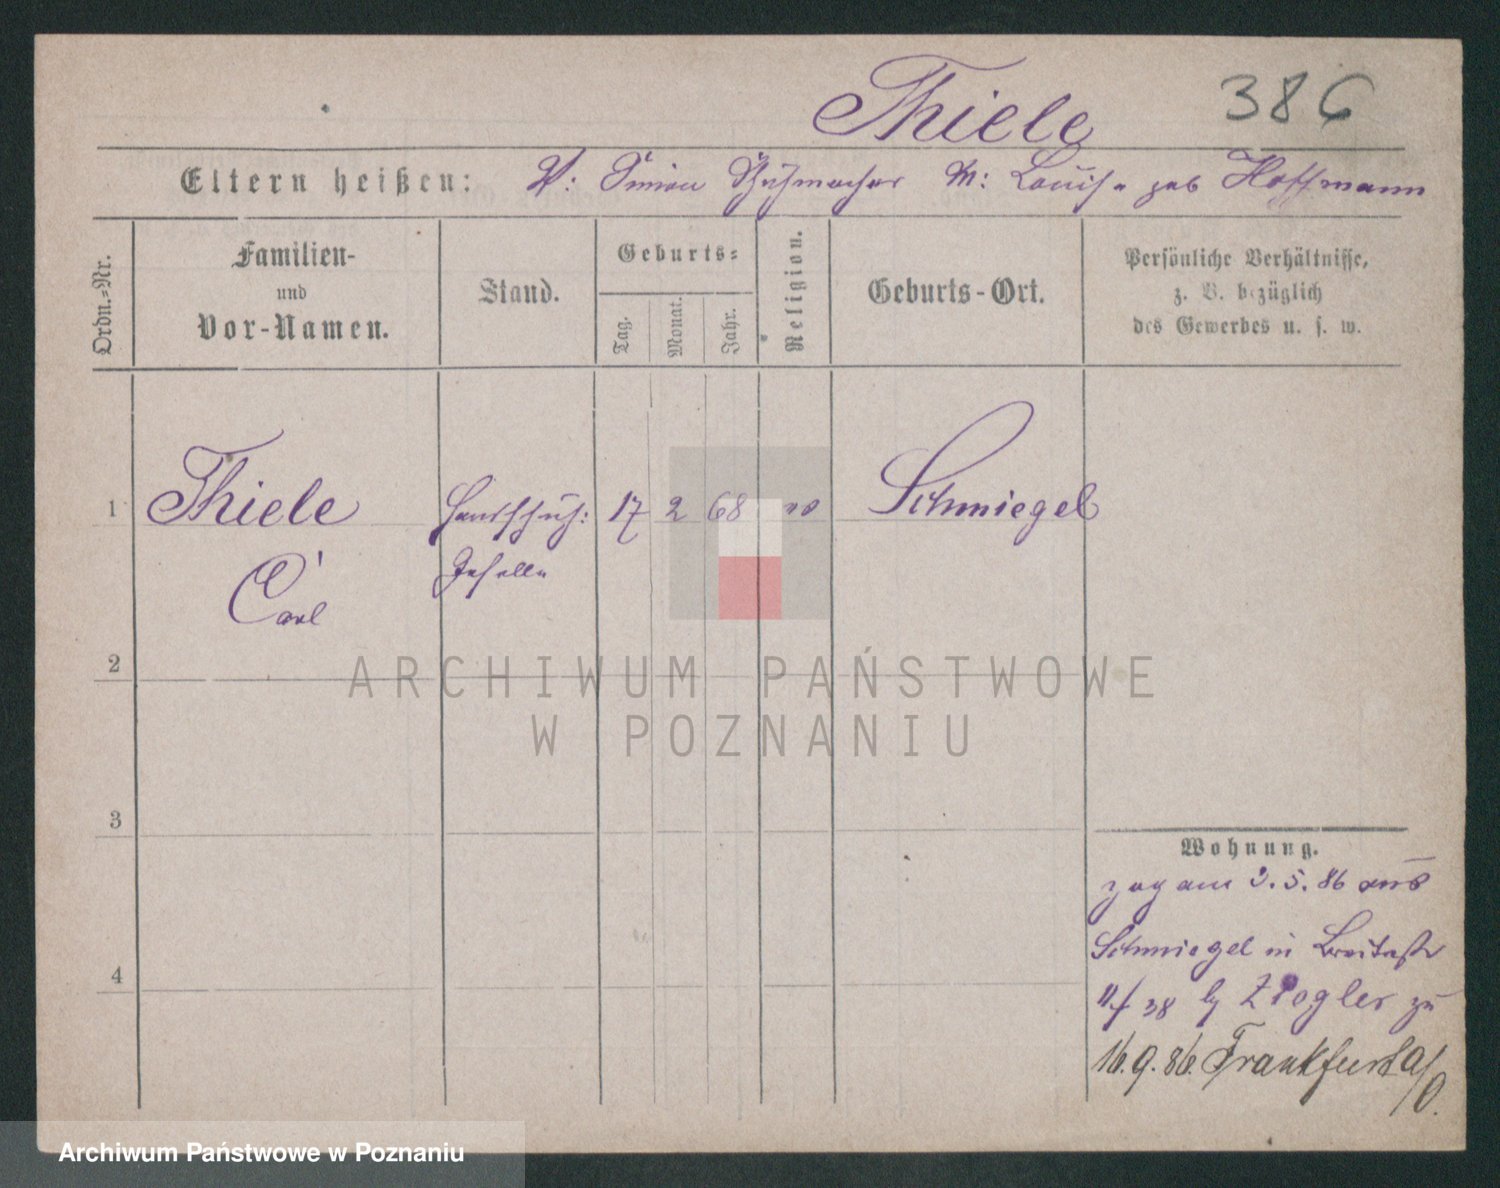 Thiele 386
Eltern heißen: V: Simon Schuhmacher M: Louise geb Hoffmann
Ordn.-Nr.
Familien-
und
Vor-Namen.
Stand.
Geburts-
Tag.
Monat.
Jahr.
Religion.
Geburts-Ort.
Persönliche Verhältnisse,
z. B. bezüglich
des Gewerbes u. s. w.
1 Thiele Handschuh: 17 2 68 Schmiegel
Carl Geselle
2
3
4
Wohnung.
zog am 3.5.86 aus
Schmiegel in Breitestr
38 by Ziegler zu
16.9.86. Frankfurt a/O.
ARCHIWUM PAŃSTWOWE
W POZNANIU
Archiwum Państwowe w Poznaniu